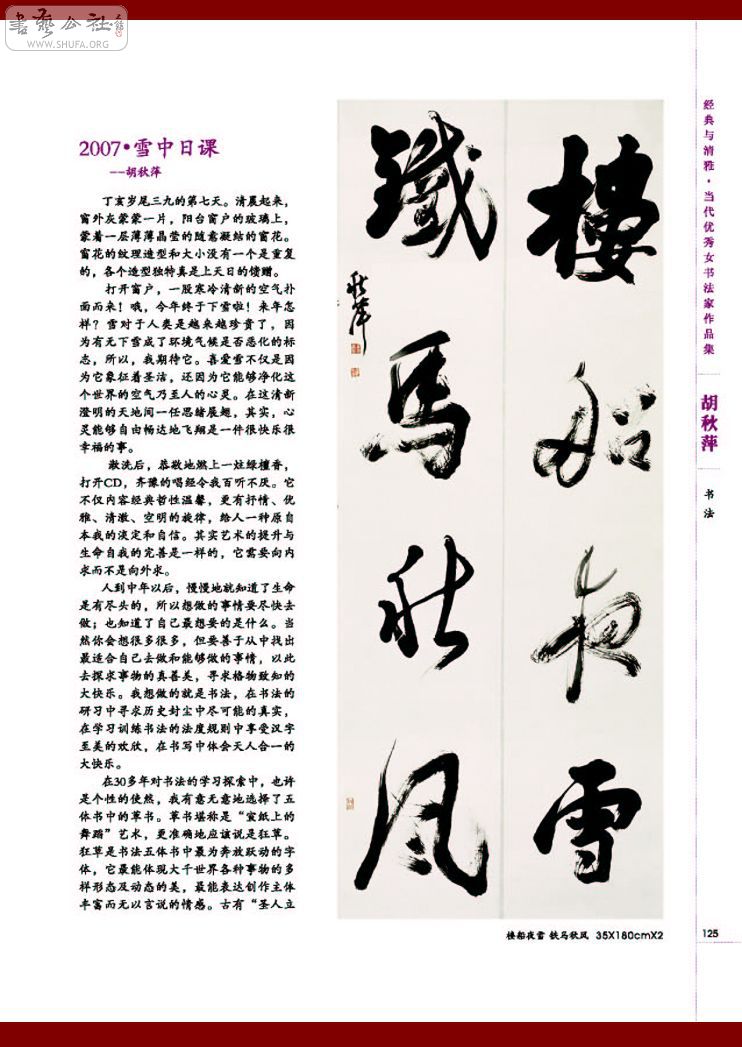 書藝公社
WWW.SHUFA.ORG
2007·雪中日课
--胡秋萍
丁亥岁尾三九的第七天。清晨起来，
窗外灰蒙蒙一片，阳台窗户的玻璃上，
蒙着一层薄薄晶莹的随意凝结的窗花。
窗花的纹理造型和大小没有一个是重复
的，各个造型独特真是上天日的馈赠。
打开窗户，一股寒冷清新的空气扑
面而来！哦，今年终于下雪啦！来年怎
样？雪对于人类是越来越珍贵了，因
为有无下雪成了环境气候是否恶化的标
志，所以，我期待它。喜爱雪不仅是因
为它象征着圣洁，还因为它能够净化这
个世界的空气乃至人的心灵。在这清新
澄明的天地间一任思绪展翅，其实，心
灵能够自由畅达地飞翔是一件很快乐很
幸福的事。
漱洗后，恭敬地燃上一炷绿檀香，
打开CD，齐豫的唱经令我百听不厌。它
不仅内容经典哲性温馨，更有抒情、优
雅、清澈、空明的旋律，给人一种原自
本我的淡定和自信。其实艺术的提升与
生命自我的完善是一样的，它需要向内
求而不是向外求。
人到中年以后，慢慢地就知道了生命
是有尽头的，所以想做的事情要尽快去
做；也知道了自己最想要的是什么。当
然你会想很多很多，但要善于从中找出
最适合自己去做和能够做的事情，以此
去探求事物的真善美，寻求格物致知的
大快乐。我想做的就是书法，在书法的
研习中寻求历史封尘中尽可能的真实，
在学习训练书法的法度规则中享受汉字
至美的欢欣，在书写中体会天人合一的
大快乐。
在30多年对书法的学习探索中，也许
是个性的使然，我有意无意地选择了五
体书中的草书。草书堪称是“宣纸上的
舞蹈”艺术，更准确地应该说是狂草。
狂草是书法五体书中最为奔放跃动的字
体，它最能体现大千世界各种事物的多
样形态及动态的美，最能表达创作主体
丰富而无以言说的情感。古有“圣人立
楼船夜雪
铁马秋风
秋萍
楼船夜雪 铁马秋风 35X180cmX2
经典与清雅·当代优秀女书法家作品集
胡秋萍
书法
125